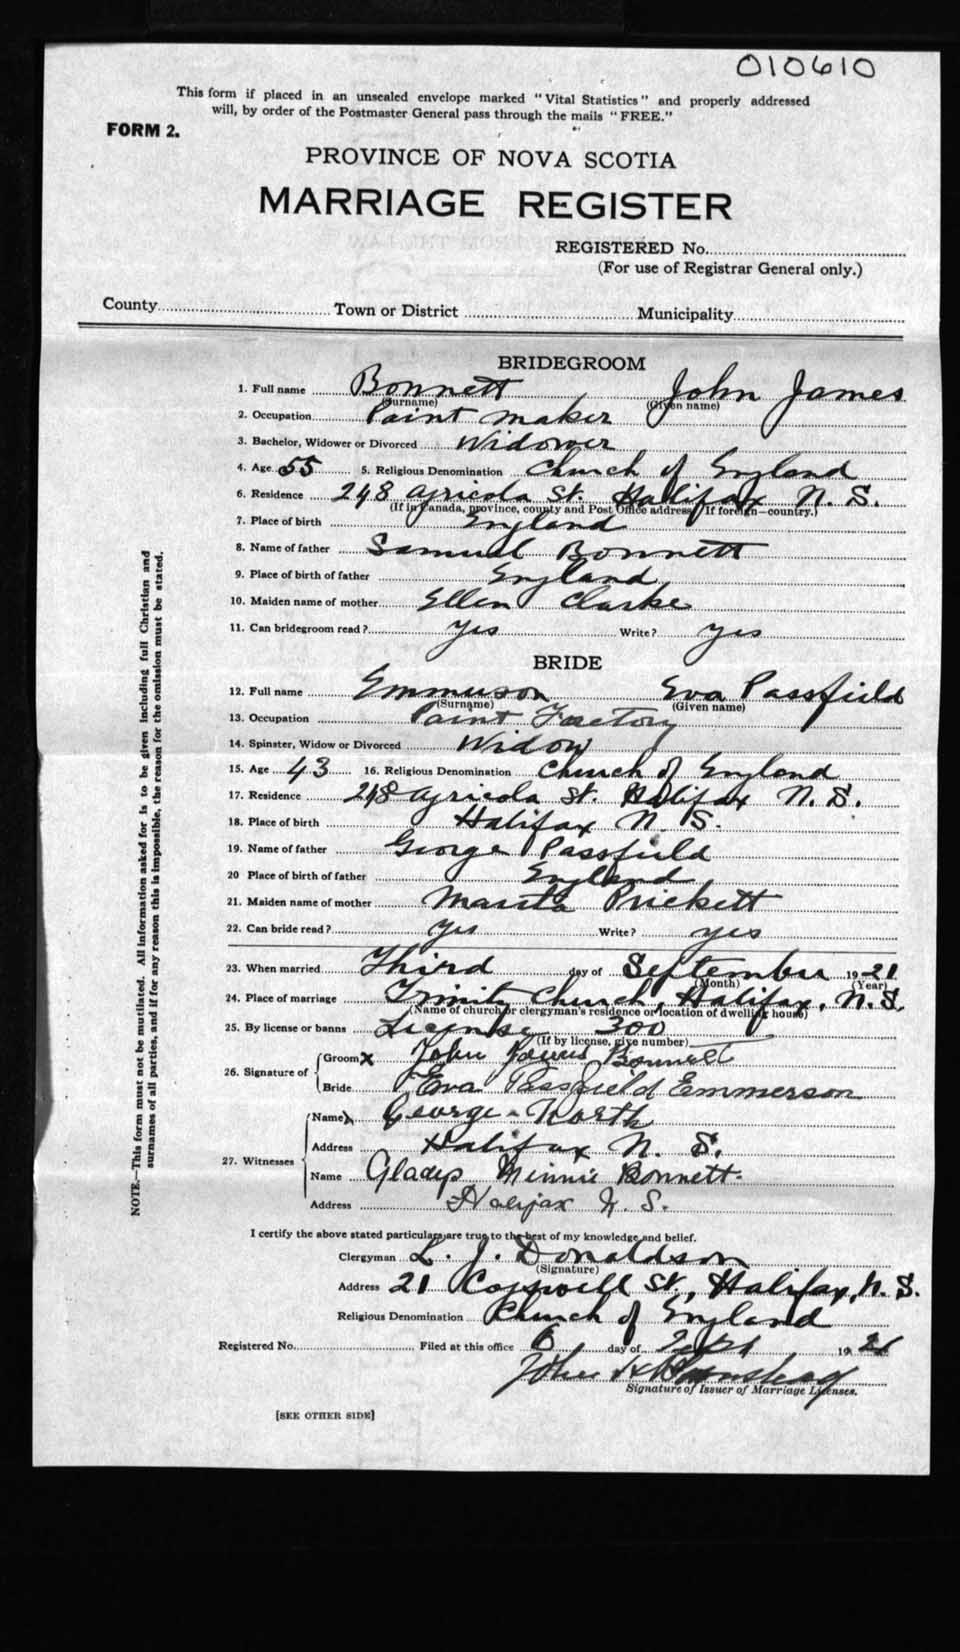 010610
This form if placed in an unsealed envelope marked "Vital Statistics" and properly addressed
will, by order of the Postmaster General pass through the mails "FREE."
FORM 2.
PROVINCE OF NOVA SCOTIA
MARRIAGE REGISTER
REGISTERED No.
(For use of Registrar General only.)
County Town or District Municipality
BRIDEGROOM
1. Full name Bonnett John James
(Surname) (Given name)
2. Occupation Paint maker
3. Bachelor, Widower or Divorced Widower
4. Age 55 5. Religious Denomination Church of England
6. Residence 248 Agricola St. Halifax N. S.
(If in Canada, province, county and Post Office address. If foreign—country.)
7. Place of birth England
8. Name of father Samuel Bonnett
9. Place of birth of father England
10. Maiden name of mother Ellen Clarke
11. Can bridegroom read? yes Write? yes
BRIDE
12. Full name Emmerson Eva Passfield
(Surname) (Given name)
13. Occupation Paint Factory
14. Spinster, Widow or Divorced Widow
15. Age 43 16. Religious Denomination Church of England
17. Residence 248 Agricola St. Halifax N. S.
18. Place of birth Halifax N. S.
19. Name of father George Passfield
20 Place of birth of father England
21. Maiden name of mother Prickett
22. Can bride read? yes Write? yes
23. When married Third day of September 1921
(Month) (Year)
24. Place of marriage Trinity Church, Halifax, N.S.
(Name of church or clergyman's residence or location of dwelling house)
25. By license or banns License 300
(If by license, give number)
26. Signature of
Groom x John James Bonnett
Bride Eva Passfield Emmerson
27. Witnesses
Name x George North
Address Halifax N. S.
Name Gladys Minnie Bonnett.
Address Halifax N. S.
I certify the above stated particulars are true to the best of my knowledge and belief.
Clergyman L. J. Donaldson
(Signature)
Address 21 Cogswell St., Halifax, N. S.
Religious Denomination Church of England
Registered No. Filed at this office 6 day of Sept 1921
John
Signature of Issuer of Marriage Licenses.
[SEE OTHER SIDE]
NOTE.—This form must not be mutilated. All information asked for is to be given including full Christian and
surnames of all parties, and if for any reason this is impossible, the reason for the omission must be stated.